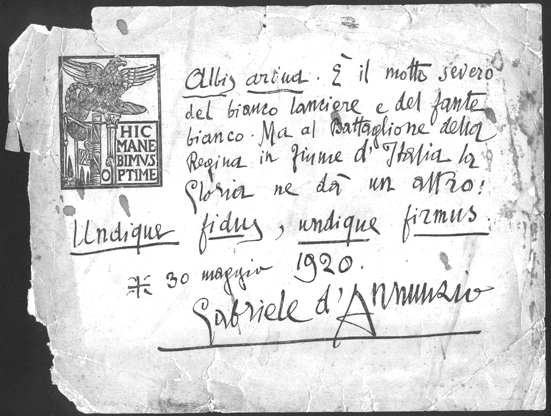 HIC
MANE
BIMVS
OPTIME
Albis ardua. È il motto severo
del bianco lanciere e del fante
bianco. Ma al Battaglione della
Regina in Fiume d'Italia la
Gloria ne dà un altro:
Undique fidus, undique firmus.
30 maggio 1920.
Gabriele d'Annunzio